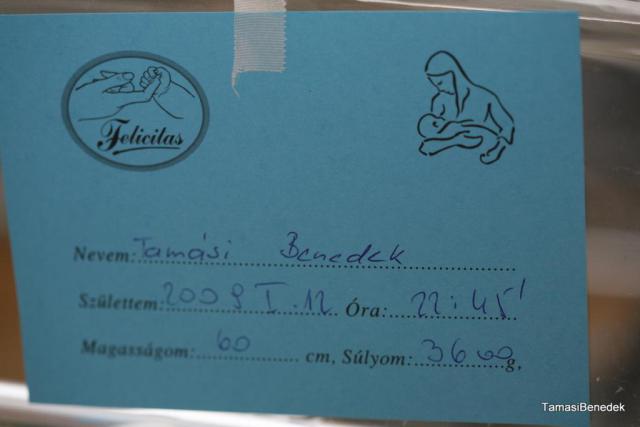 Felicitas
Nevem: Tamási Benedek
Születtem: 2009 I. 12. Óra: 22:45'
Magasságom: 60 cm, Súlyom: 3600 g,
TamasiBenedek